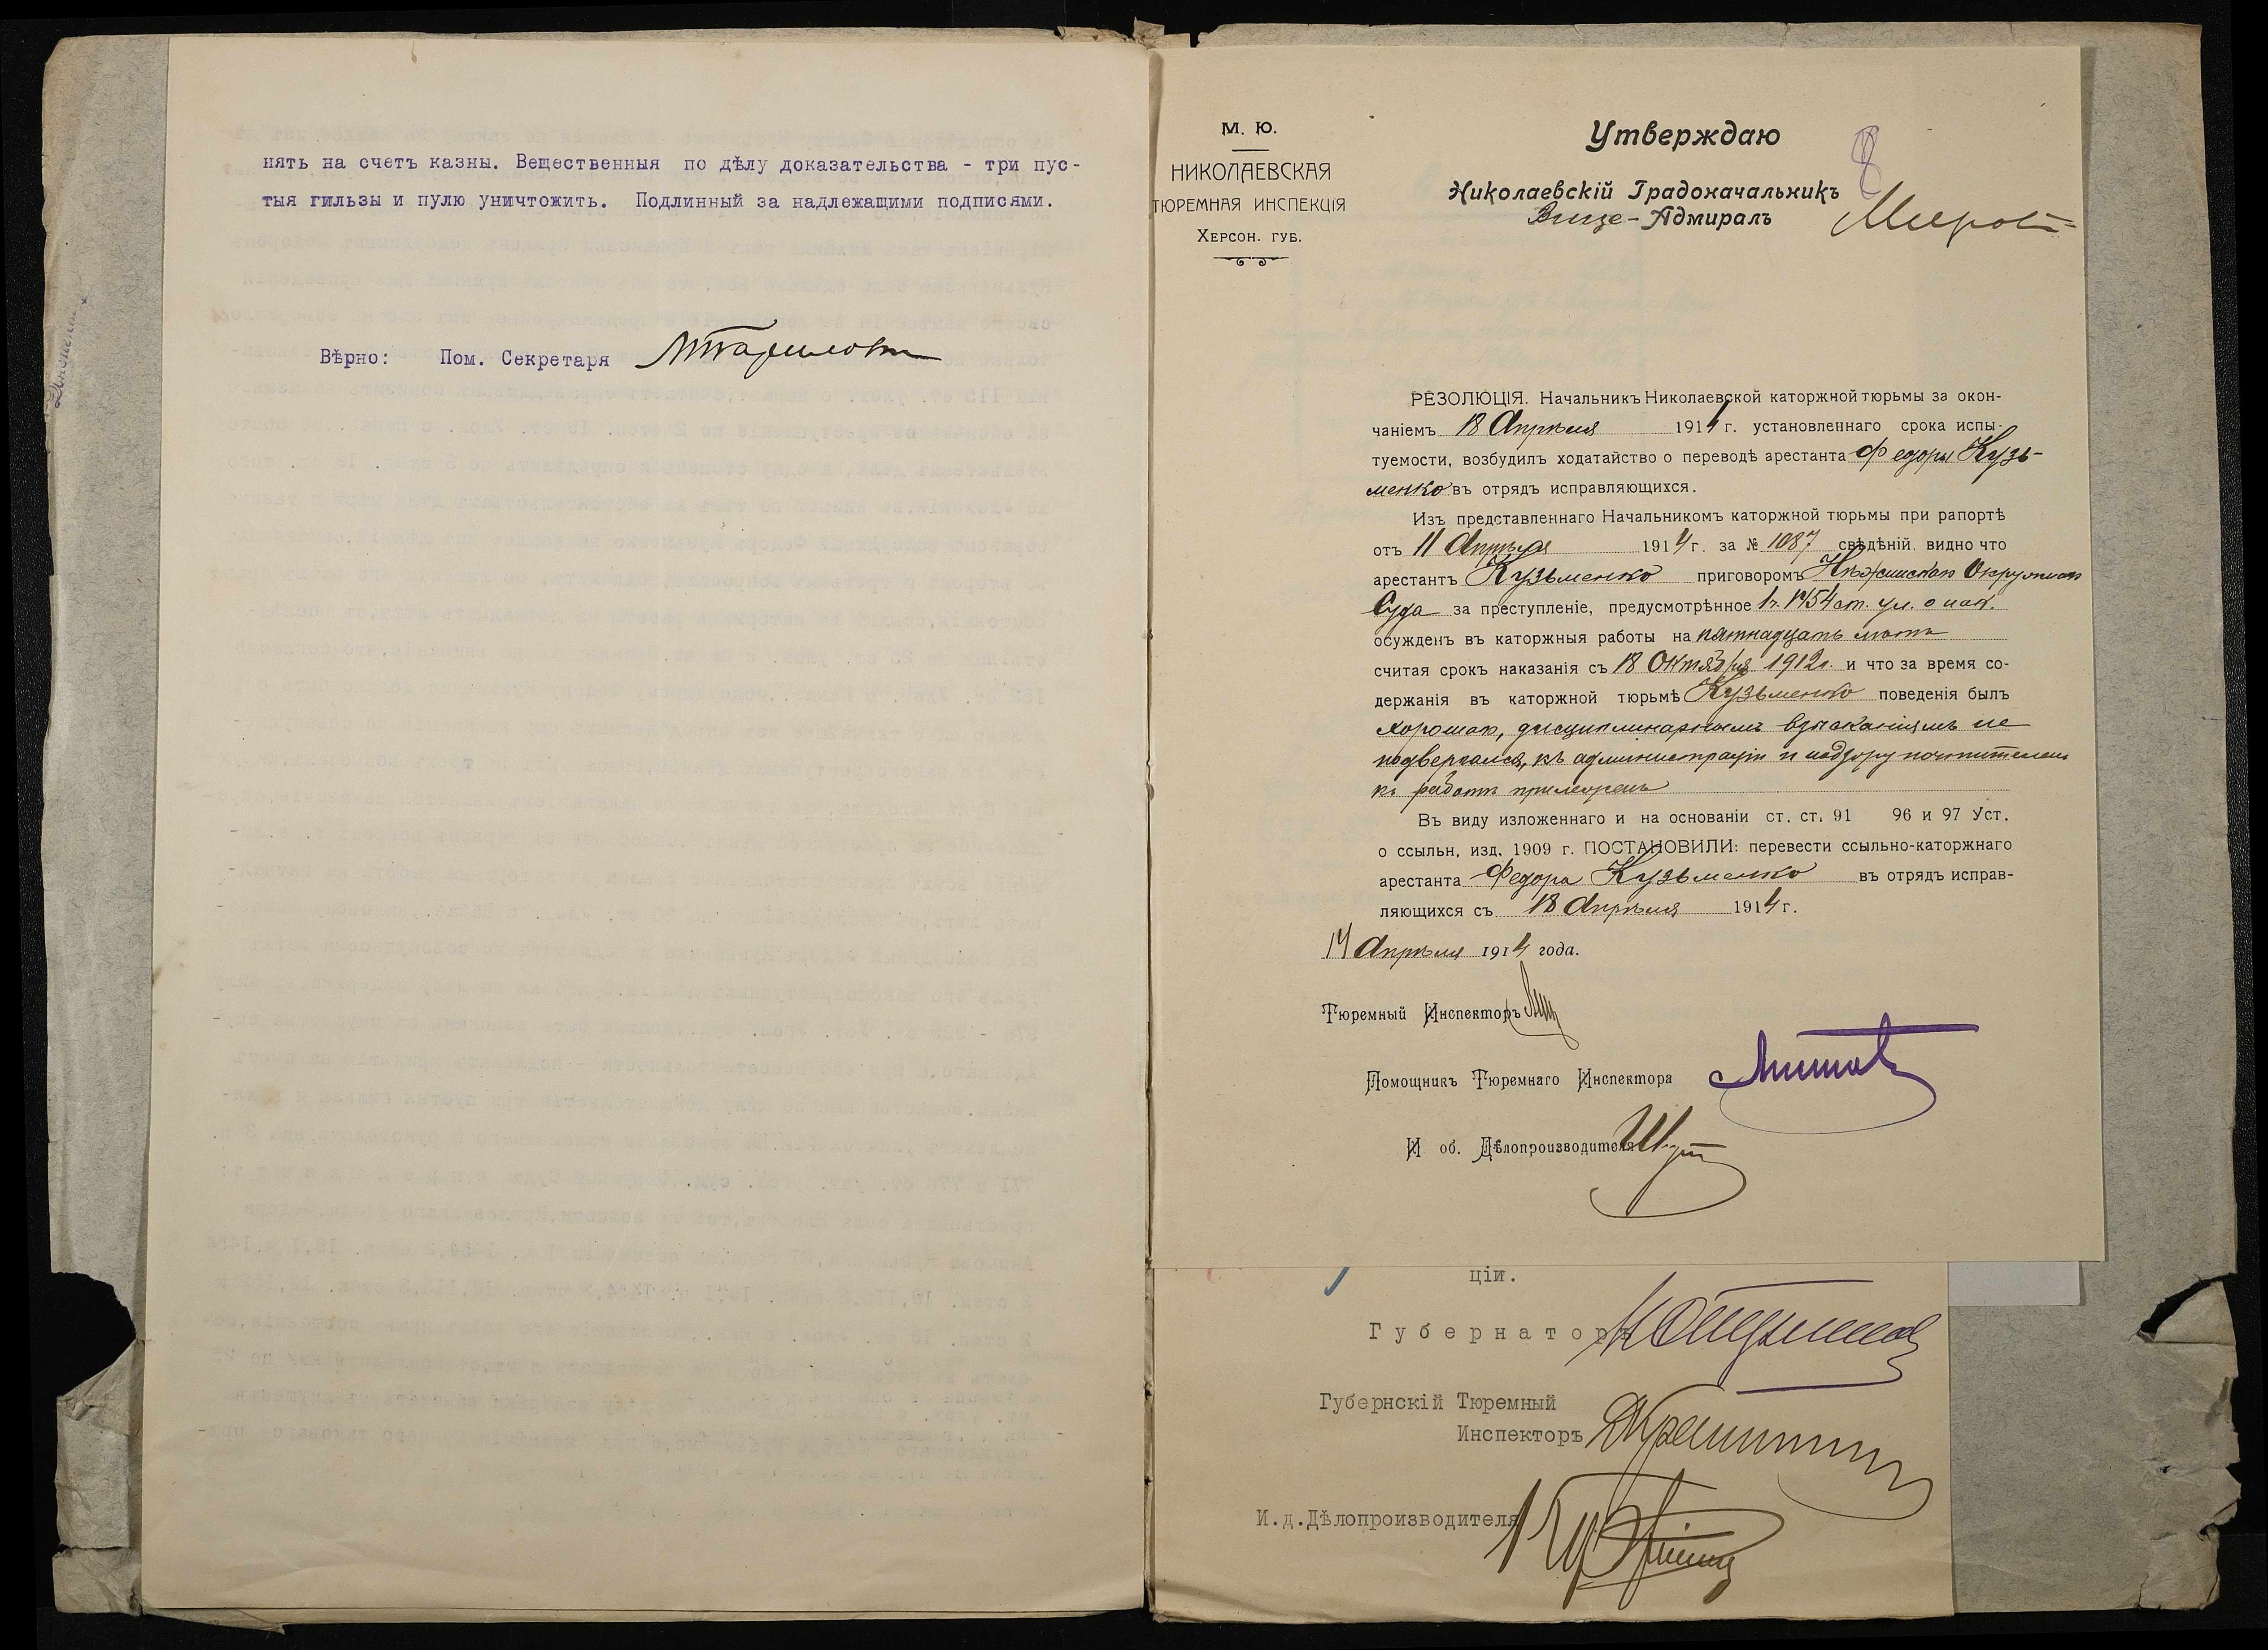 нять на счетъ казны. Вещественныя по дѣлу доказательства - три пус-
тыя гильзы и пулю уничтожить. Подлинный за надлежащими подписями.
Вѣрно: Пом. Секретаря
М. Ю.
НИКОЛАЕВСКАЯ
ТЮРЕМНАЯ ИНСПЕКЦІЯ
ХЕРСОН. ГУБ.
Утверждаю
8
Николаевскій Градоначальникъ
Вице-Адмиралъ
РЕЗОЛЮЦІЯ. Начальникъ Николаевской каторжной тюрьмы за окон-
чаніемъ 18 Апрѣля 1914 г. установленнаго срока испы-
туемости, возбудилъ ходатайство о переводѣ арестанта Федора Кузь-
менко въ отрядъ исправляющихся.
Изъ представленнаго Начальникомъ каторжной тюрьмы при рапортѣ
отъ 11 Апрѣля 1914 г. за № 1087 свѣдѣній, видно что
арестантъ Кузьменко приговоромъ Нѣжинскаго Окружнаго
Суда за преступленіе, предусмотрѣнное 1 ч. 1454 ст. ул. о нак.
осужденъ въ каторжныя работы на пятнадцать лѣтъ
считая срокъ наказанія съ 18 Октября 1912 г. и что за время со-
держанія въ каторжной тюрьмѣ Кузьменко поведенія былъ
хорошаго, дисциплинарнымъ взысканіямъ не
подвергался, къ администраціи и надзору почтителенъ
къ работѣ прилеженъ
Въ виду изложеннаго и на основаніи ст. ст. 91 96 и 97 Уст.
о ссыльн, изд. 1909 г. ПОСТАНОВИЛИ: перевести ссыльно-каторжнаго
арестанта Федора Кузьменко въ отрядъ исправ-
ляющихся съ 18 Апрѣля 1914 г.
14 Апрѣля 1914 года.
Тюремный Инспекторъ
Помощникъ Тюремнаго Инспектора
И об. Дѣлопроизводителя
ціи.
Губернаторъ
Губернскій Тюремный
Инспекторъ
И.д.Дѣлопроизводителя